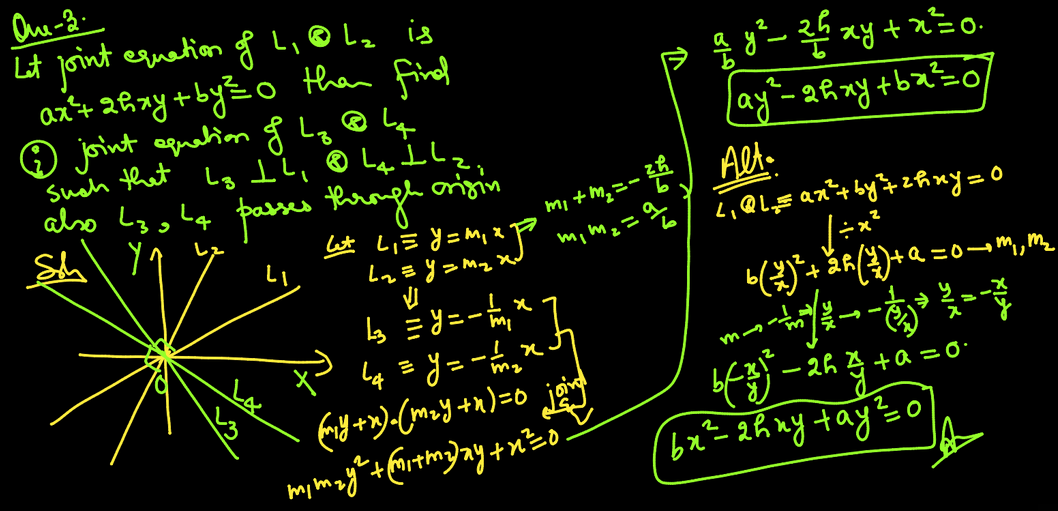 Que-2.
Let joint equation of L₁ & L₂ is
ax²+2hxy+by²=0 then find
(i) joint equation of L₃ & L₄
such that L₃ ⊥ L₁ & L₄ ⊥ L₂,
also L₃, L₄ passes through origin
Soln
Y
L₂
L₁
X
O
L₄
L₃
Let L₁ ≡ y = m₁x
L₂ ≡ y = m₂x
⇓
L₃ ≡ y = -1/m₁ x
L₄ ≡ y = -1/m₂ x
joint
(m₁y+x)·(m₂y+x)=0
m₁m₂y²+(m₁+m₂)xy+x²=0
⇒ m₁+m₂ = -2h/b
m₁m₂ = a/b
→ a/b y² - 2h/b xy + x² = 0.
ay² - 2hxy + bx² = 0
Alt.
L₁ & L₂ ≡ ax²+by²+2hxy = 0
↓ ÷x²
b(y/x)² + 2h(y/x) + a = 0 → m₁, m₂
m → -1/m ⇒ y/x → -1/(y/x) ⇒ y/x = -x/y
b(-x/y)² - 2h x/y + a = 0.
bx² - 2hxy + ay² = 0